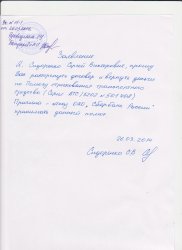 Заявление
Я, Сидоренко Сергей Викторович, прошу
Вас расторгнуть договор и вернуть деньги
по Полису страхования транспортного
средства (Серия АТС/5202 №
Причина - отказ ОАО "Сбербанк России"
принимать данный полис.
20.03.2014
Сидоренко С.В.